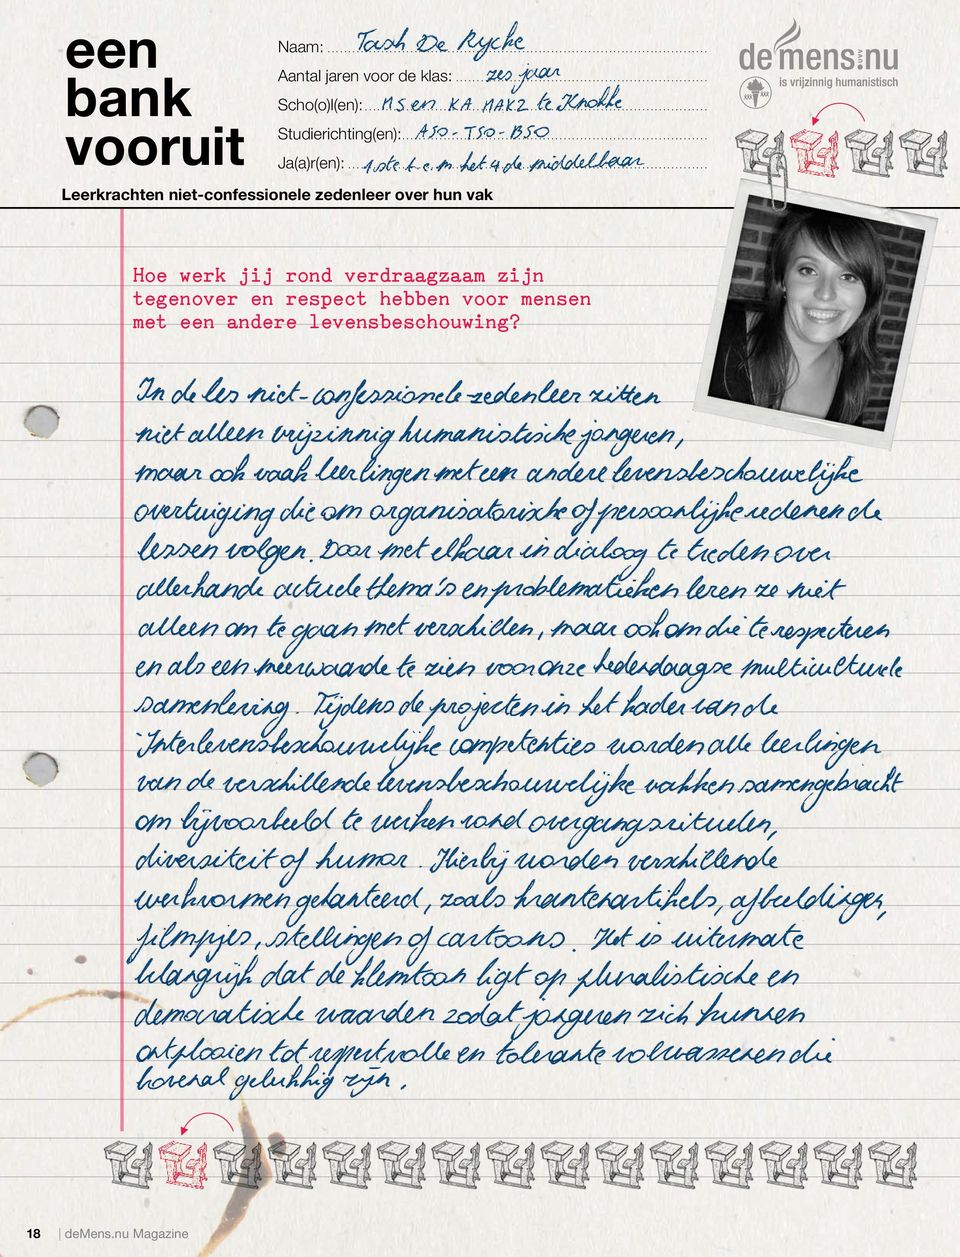 een
bank
vooruit
Naam: Tash De Rycke
Aantal jaren voor de klas: zes jaar
Scho(o)l(en): MS en KA MAKZ te Knokke
Studierichting(en): ASO - TSO - BSO
Ja(a)r(en): 1ste t.e.m. het 4de middelbaar
Leerkrachten niet-confessionele zedenleer over hun vak
deMens.nu
uvv
is vrijzinnig humanistisch
Hoe werk jij rond verdraagzaam zijn
tegenover en respect hebben voor mensen
met een andere levensbeschouwing?
In de les niet-confessionele zedenleer zitten
niet alleen vrijzinnig humanistische jongeren,
maar ook vaak leerlingen met een andere levensbeschouwelijke
overtuiging die om organisatorische of persoonlijke redenen de
lessen volgen. Door met elkaar in dialoog te treden over
allerhande actuele thema's en problematieken leren ze niet
alleen om te gaan met verschillen, maar ook om die te respecteren
en als een meerwaarde te zien voor onze hedendaagse multiculturele
samenleving. Tijdens de projecten in het kader van de
'Interlevensbeschouwelijke competenties worden alle leerlingen
van de verschillende levensbeschouwelijke vakken samengebracht
om bijvoorbeeld te werken rond overgangsrituelen,
diversiteit of humor. Hierbij worden verschillende
werkvormen gehanteerd, zoals krantenartikels, afbeeldingen,
filmpjes, stellingen of cartoons. Het is uitermate
belangrijk dat de klemtoon ligt op pluralistische en
democratische waarden zodat jongeren zich kunnen
ontplooien tot respectvolle en tolerante volwassenen die
bovenal gelukkig zijn.
18 | deMens.nu Magazine